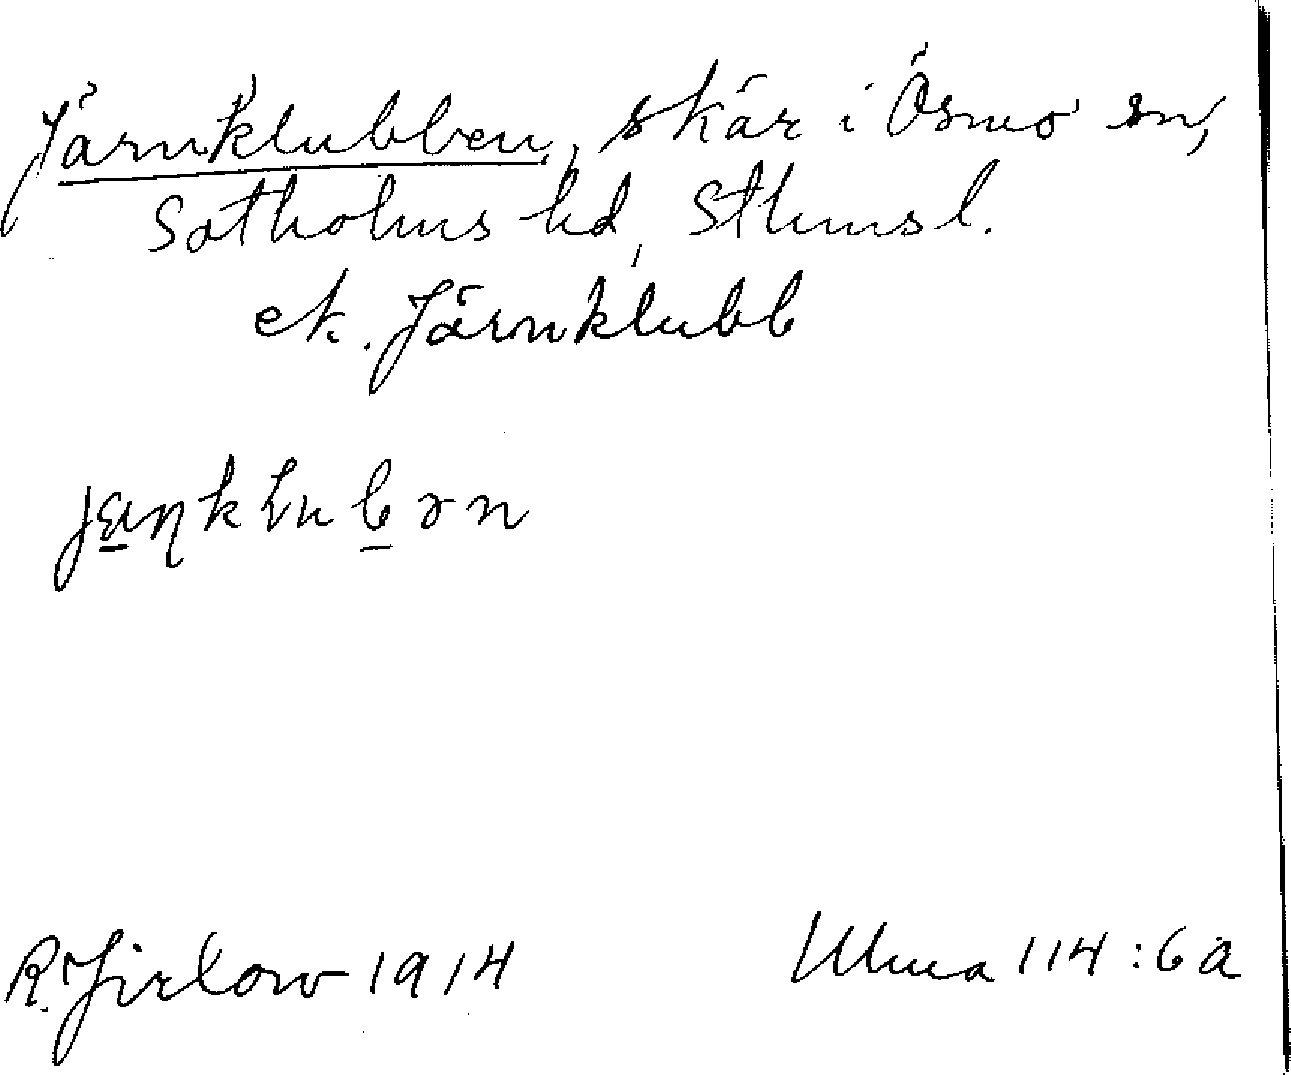 Järnklubben, skär i Ösmo sn,
Sotholms hd, Sthmsl.
ek. Järnklubb
R. Jirlow 1914
Ulma 114:6a